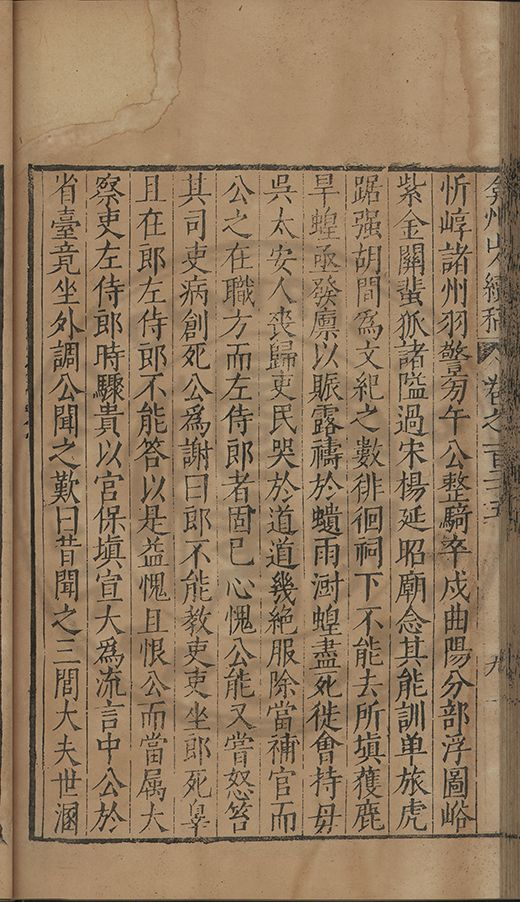 弇州山人續稿 卷之一百三十五 九
忻崞諸州羽警旁午公整騎卒戍曲陽分部浮圖峪
紫金關蜚狐諸隘過宋楊延昭廟念其能訓单旅虎
踞强胡間爲文紀之數徘徊祠下不能去所填獲鹿
旱蝗亟發廪以賑露禱於蟦雨澍蝗盡死徙會持毋
吳太安人喪歸吏民哭於道道幾絶服除當補官而
公之在職方而左侍郎者固已心愧公能又嘗怒笞
其司吏病創死公爲謝曰郎不能教吏吏坐郎死辠
且在郎左侍郎不能答以是益愧且恨公而當属大
察吏左侍郎時驟貴以宮保填宣大爲流言中公於
省臺竟坐外調公聞之歎曰昔聞之三閭大夫世溷